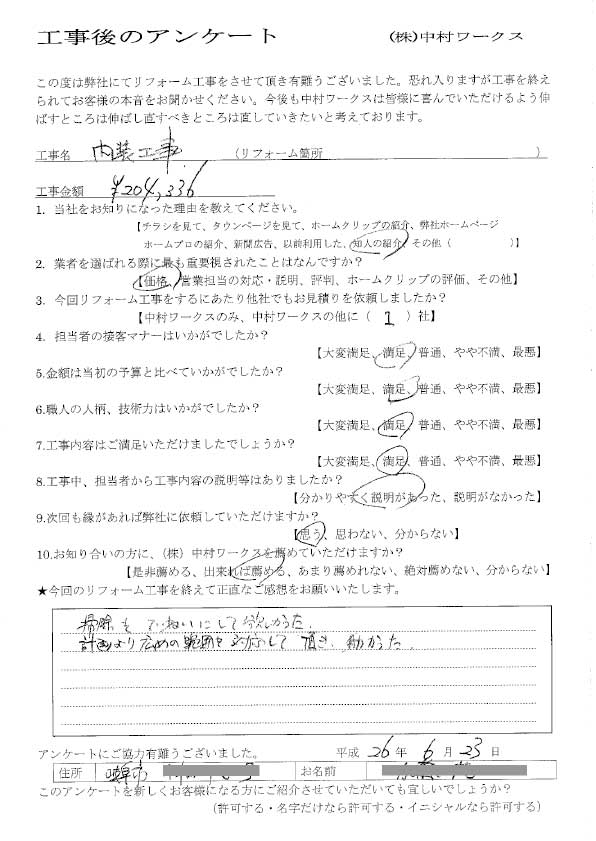 工事後のアンケート (株)中村ワークス
この度は弊社にてリフォーム工事をさせて頂き有難うございました。恐れ入りますが工事を終え
られてお客様の本音をお聞かせください。今後も中村ワークスは皆様に喜んでいただけるよう伸
ばすところは伸ばし直すべきところは直していきたいと考えております。
工事名 内装工事 (リフォーム箇所 )
工事金額 ¥204,336
1. 当社をお知りになった理由を教えてください。
【チラシを見て、タウンページを見て、ホームクリップの紹介、弊社ホームページ
ホームプロの紹介、新聞広告、以前利用した、知人の紹介、その他( )】
2. 業者を選ばれる際に最も重要視されたことはなんですか?
【価格、営業担当の対応・説明、評判、ホームクリップの評価、その他】
3. 今回リフォーム工事をするにあたり他社でもお見積りを依頼しましたか?
【中村ワークスのみ、中村ワークスの他に( 1 )社】
4. 担当者の接客マナーはいかがでしたか?
【大変満足、満足、普通、やや不満、最悪】
5.金額は当初の予算と比べていかがでしたか?
【大変満足、満足、普通、やや不満、最悪】
6.職人の人柄、技術力はいかがでしたか?
【大変満足、満足、普通、やや不満、最悪】
7.工事内容はご満足いただけましたでしょうか?
【大変満足、満足、普通、やや不満、最悪】
8.工事中、担当者から工事内容の説明等はありましたか?
【分かりやすく説明があった、説明がなかった】
9.次回も縁があれば弊社に依頼していただけますか?
【思う、思わない、分からない】
10.お知り合いの方に、(株) 中村ワークスを薦めていただけますか?
【是非薦める、出来れば薦める、あまり薦めれない、絶対薦めない、分からない】
★今回のリフォーム工事を終えて正直なご感想をお願いいたします。
掃除をていねいにして欲しかった。
計画より広めの範囲を対応して頂き、助かった。
アンケートにご協力有難うございました。 平成 26 年 6 月 23 日
住所 市 お名前
このアンケートを新しくお客様になる方にご紹介させていただいても宜しいでしょうか?
(許可する・名字だけなら許可する・イニシャルなら許可する)